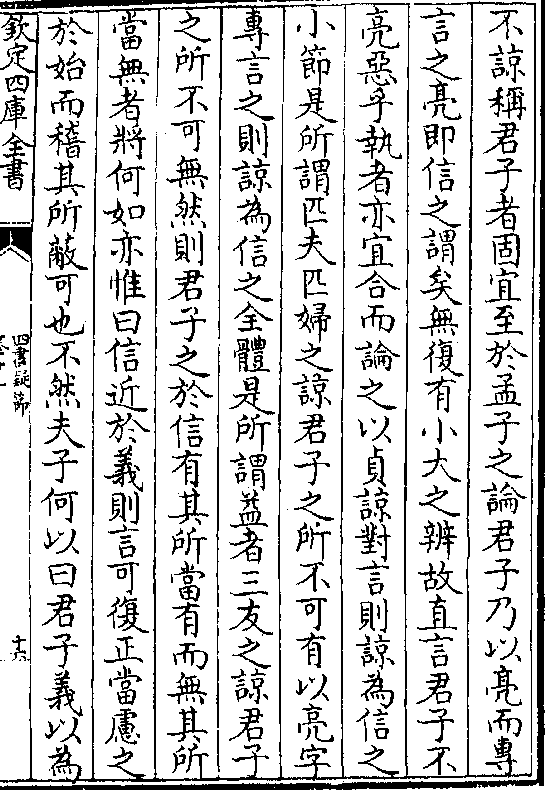 不諒稱君子者固宜至於孟子之論君子乃以亮而專
言之亮即信之謂矣無復有小大之辨故直言君子不
亮惡乎執者亦宜合而論之以貞諒對言則諒為信之
小節是所謂匹夫匹婦之諒君子之所不可有以亮字
專言之則諒為信之全體是所謂益者三友之諒君子
之所不可無然則君子之於信有其所當有而無其所
當無者將何如亦惟曰信近於義則言可復正當慮之
於始而稽其所蔽可也不然夫子何以曰君子義以為
欽定四庫全書
四書疑節
十六